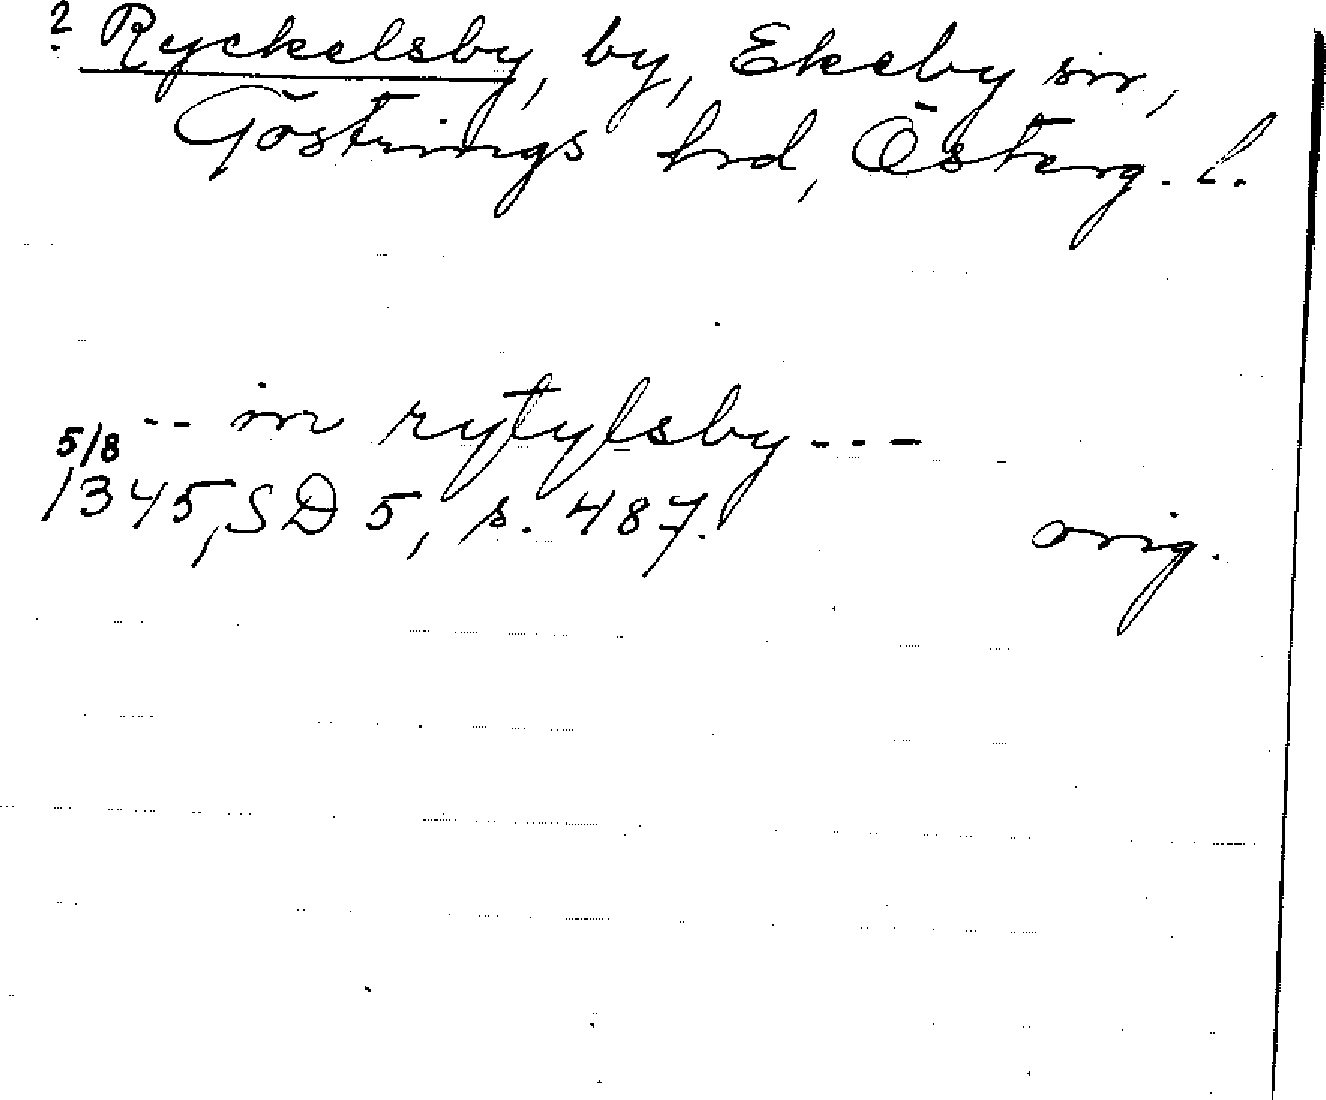 ? Ryckelsby, by, Ekeby sn,
Göstrings hrd, Österg. l.
-- in rytylsby ---
5/8
1345, SD 5, s. 487. orig.